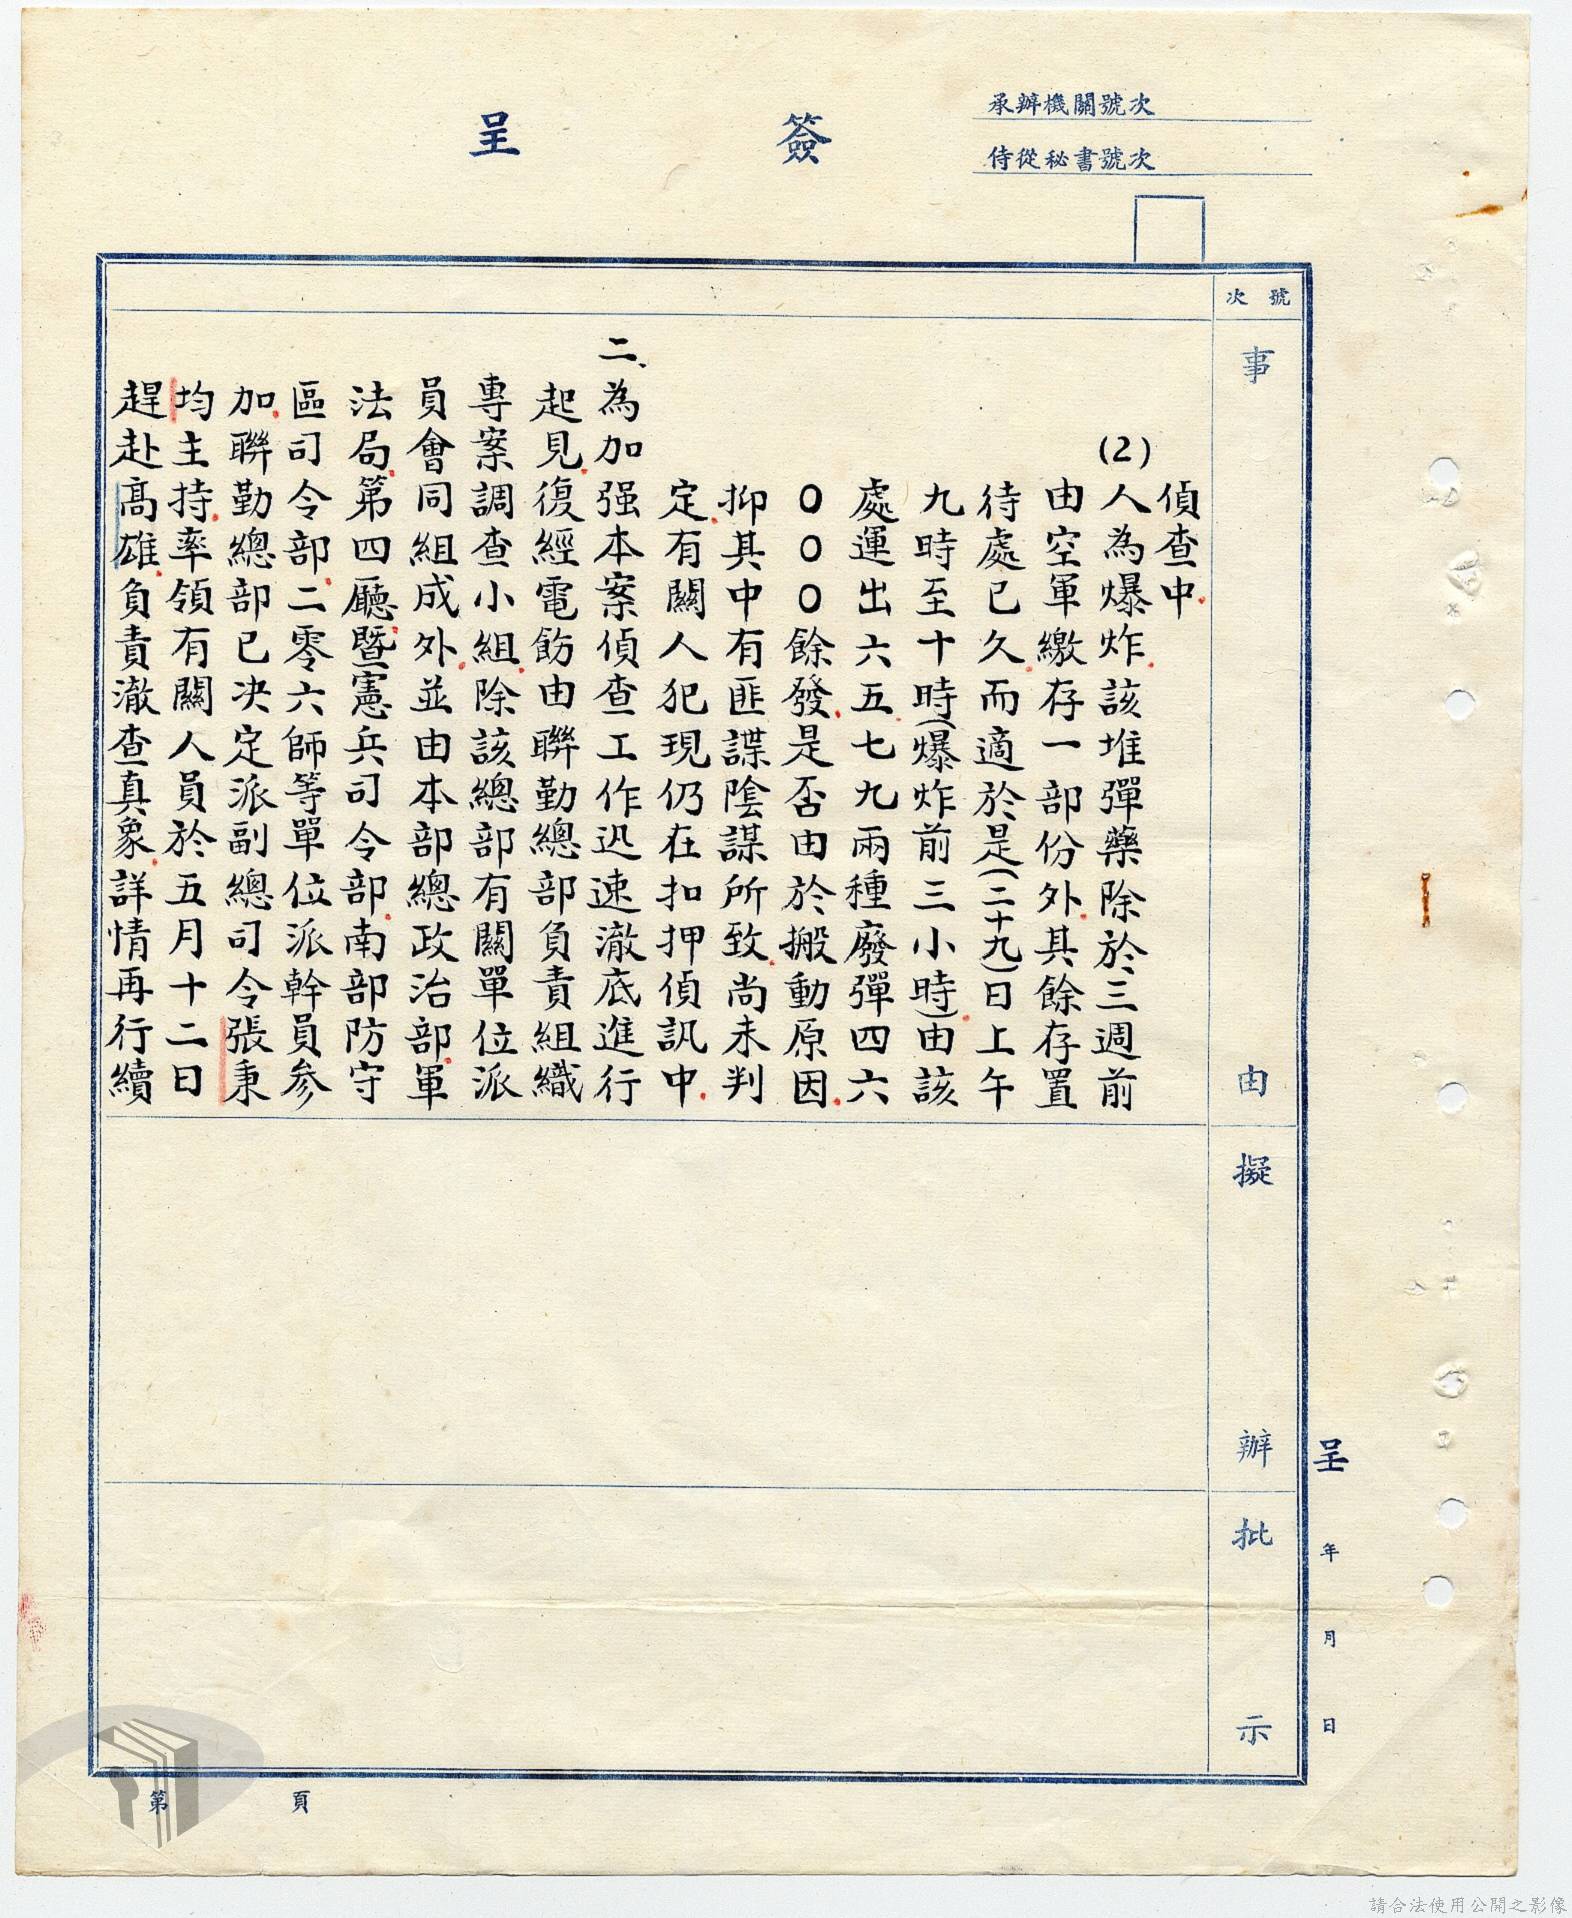 簽呈
承辦機關號次
侍從秘書號次
號次
事由
擬辦
批示
偵查中.
(2)人為爆炸.該堆彈藥除於三週前
由空軍繳存一部份外.其餘存置
待處已久.而適於是(二十九)日上午
九時至十時(爆炸前三小時).由該
處運出六五七九兩種廢彈四六
〇〇〇餘發.是否由於搬動原因.
抑其中有匪諜陰謀所致.尚未判
定.有關人犯現仍在扣押偵訊中.
二、為加强本案偵查工作迅速澈底進行
起見.復經電飭由聯勤總部負責組織
專案調查小組.除該總部有關單位派
員會同組成外.並由本部總政治部.軍
法局.第四廳.暨憲兵司令部.南部防守
區司令部.二零六師等單位派幹員參
加.聯勤總部已決定派副總司令張秉
均主持.率領有關人員於五月十二日
趕赴高雄.負責澈查真象.詳情再行續
呈 年 月 日
第 頁
請合法使用公開之影像